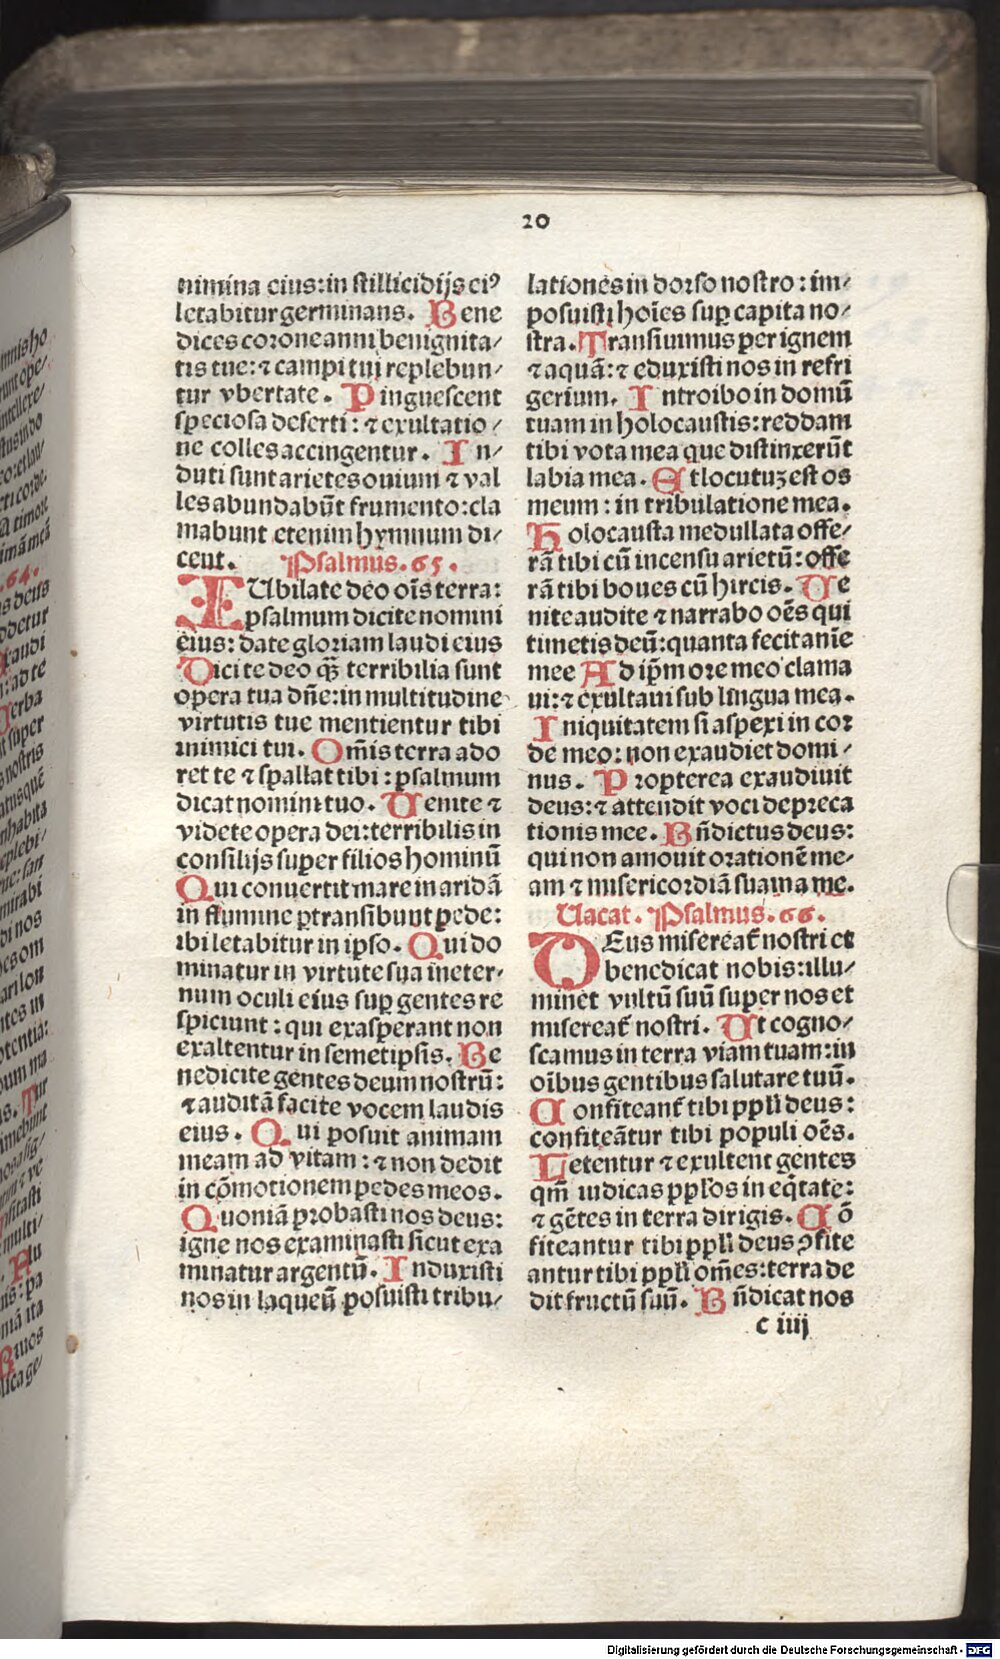 20
nimina eius: in stillicidijs eiꝰ
letabitur germinans. Bene
dices corone anni benignita/
tis tue: ⁊ campi tui replebun/
tur vbertate. Pinguescent
speciosa deserti: ⁊ exultatio/
ne colles accingentur. In/
duti sunt arietes ouium ⁊ val
les abundabūt frumento: cla
mabunt etenim hymnum di/
cent. Psalmus. 65.
IUbilate deo oīs terra:
psalmum dicite nomini
eius: date gloriam laudi eius
Dicite deo q̃ȝ terribilia sunt
opera tua dñe: in multitudine
virtutis tue mentientur tibi
inimici tui. Om̄is terra ado
ret te ⁊ spallat tibi: psalmum
dicat nomini tuo. Uenite ⁊
videte opera dei: terribilis in
consilijs super filios hominū
Qui conuertit mare in aridā
in flumine ꝑtransibunt pede:
ibi letabitur in ipso. Qui do
minatur in virtute sua ineter/
num oculi eius suꝑ gentes re
spiciunt: qui exasperant non
exaltentur in semetipsis. Be
nedicite gentes deum nostrū:
⁊ auditā facite vocem laudis
eius. Qui posuit animam
meam ad vitam: ⁊ non dedit
in cōmotionem pedes meos.
Quoniā probasti nos deus:
igne nos examinasti sicut exa
minatur argentū. Induxisti
nos in laqueū posuisti tribu/
lationes in dorso nostro: im/
posuisti hoīes suꝑ capita no/
stra. Transiuimus per ignem
⁊ aquā: ⁊ eduxisti nos in refri
gerium. Introibo in domū
tuam in holocaustis: reddam
tibi vota mea que distinxerūt
labia mea. Et locutuȝ est os
meum: in tribulatione mea.
Holocausta medullata offe/
rā tibi cū incensu arietū: offe
rā tibi boues cū hircis. Ue
nite audite ⁊ narrabo oēs qui
timetis deū: quanta fecit anīe
mee Ad ip̄m ore meo clama
ui: ⁊ exultaui sub lingua mea.
Iniquitatem si aspexi in cor
de meo: non exaudiet domi/
nus. Propterea exaudiuit
deus: ⁊ attendit voci depreca
tionis mee. Bn̄dictus deus:
qui non amouit orationē me/
am ⁊ misericordiā suam a me.
Uacat. Psalmus. 66.
DEus misereat̃ nostri et
benedicat nobis: illu/
minet vultū suū super nos et
misereat̃ nostri. Ut cogno/
scamus in terra viam tuam: in
oībus gentibus salutare tuū.
Confiteant̃ tibi ppl̄i deus:
confiteātur tibi populi oēs.
Letentur ⁊ exultent gentes
qm̄ iudicas ppl̄os in eq̄tate:
⁊ gētes in terra dirigis. Cō
fiteantur tibi ppl̄i deus ꝯfite
antur tibi ppl̄i om̄es: terra de
dit fructū suū. Bn̄dicat nos
c iiij
Digitalisierung gefördert durch die Deutsche Forschungsgemeinschaft - DFG